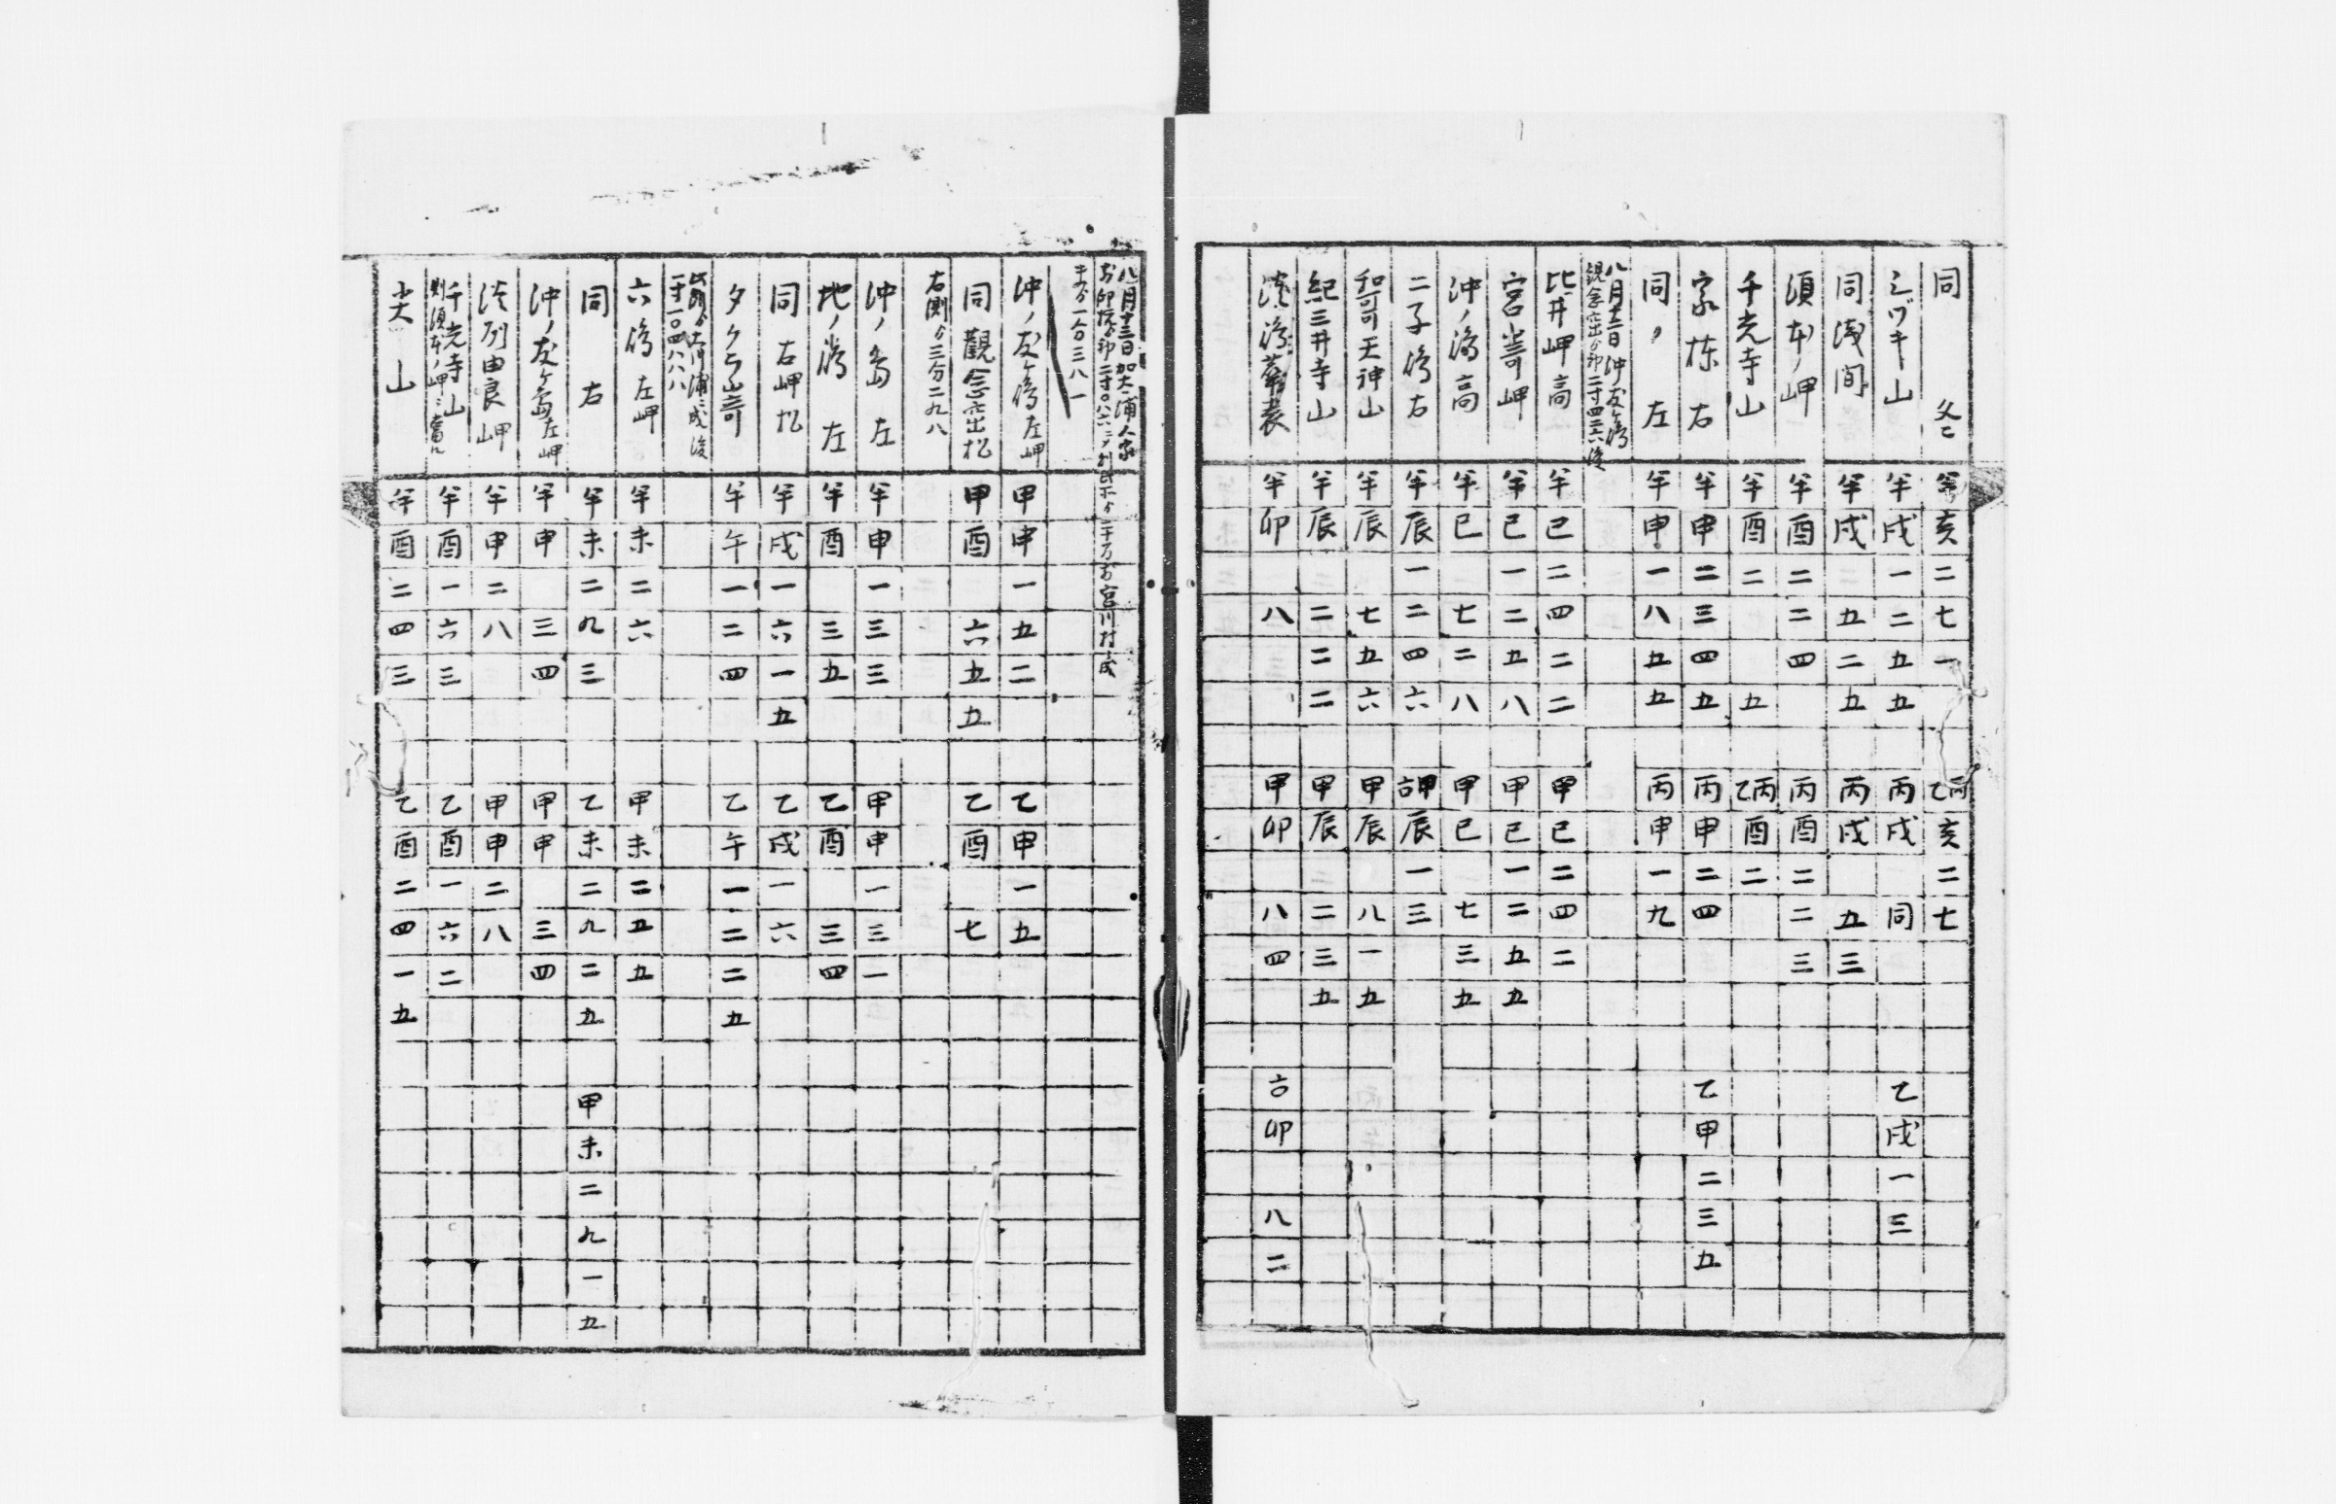 同 冬ニ 半亥二七一 乙丙亥二七
シヅキ山 半戌一二五五 丙戌同 乙戌一三
同浅間 半戌五二五 丙戌五三
須本ノ岬 半酉二二四 丙酉二二三
千光寺山 半酉二五 乙丙酉二
家棟右 半申二三四五 丙申二四 乙申二三五
同ノ左 半申一八五五 丙申一九
八月十二日 沖友ケ島
観念窟ゟ卯二寸四三六後
比井岬高 半巳二四二二 甲巳二四二
宮崎岬 半巳一二五八 甲巳一二五五
沖ノ島高 半巳七二八 甲巳七三五
二子島右 半辰一二四六 甲辰一三
和可天神山 半辰七五六 甲辰八一五
紀三井寺山 半辰二二二 甲辰二三五
淡島 半卯八 甲卯八四 卯八二
八月十三日加太浦人家
半分一合三八一
沖ノ友ケ島左岬 甲申一五二 乙申一五
同観念窟出松 甲酉六五五 乙酉七
右側ゟ三分二九八
沖ノ島左 半申一三三 甲申一三一
地ノ島左 半酉三五 乙酉三四
同右岬松 半戌一六一五 乙戌一六
タクラ崎 半午一二四 乙午一二二五
一寸一〇四八八八
六島左岬 半未二六 甲未二五五
同右 半未二九三 乙未二九二五 甲未二九一五
沖ノ友ケ島左岬 半申三四 甲申三四
淡列由良岬 半申二八 甲申二八
千光寺山
則須本ノ岬ニ當ル 半酉一六三 乙酉一六二
尖山 半酉二四三 乙酉二四一五